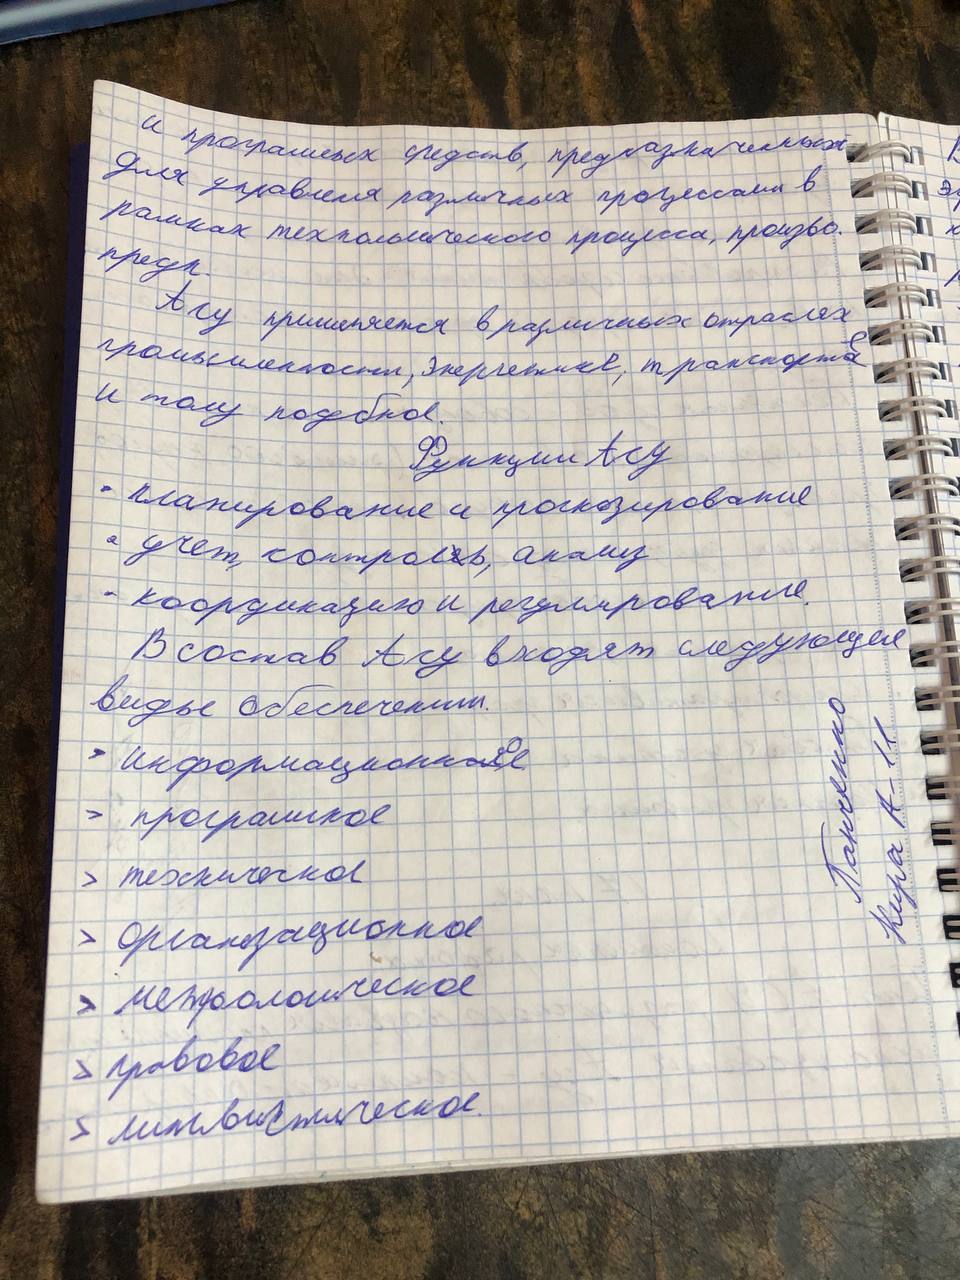 и програмных средств, предназначенных
для управленя различных процессами в
рамках технологического процесса, произво.
предп.
АСУ применяется в различных отраслех
промышлености, энергетике, транспорте
и тому подобное.
Функции АСУ
- планирование и прогнозирование
- учет, контроль, анализ
- координацию и регулирование.
В состав АСУ входят следующее
виды обеспечении.
> информационное
> програмное
> техническое
> организационное
> метрологическое
> правовое
> лингвистическое.
Панченко
Кира А-11
В